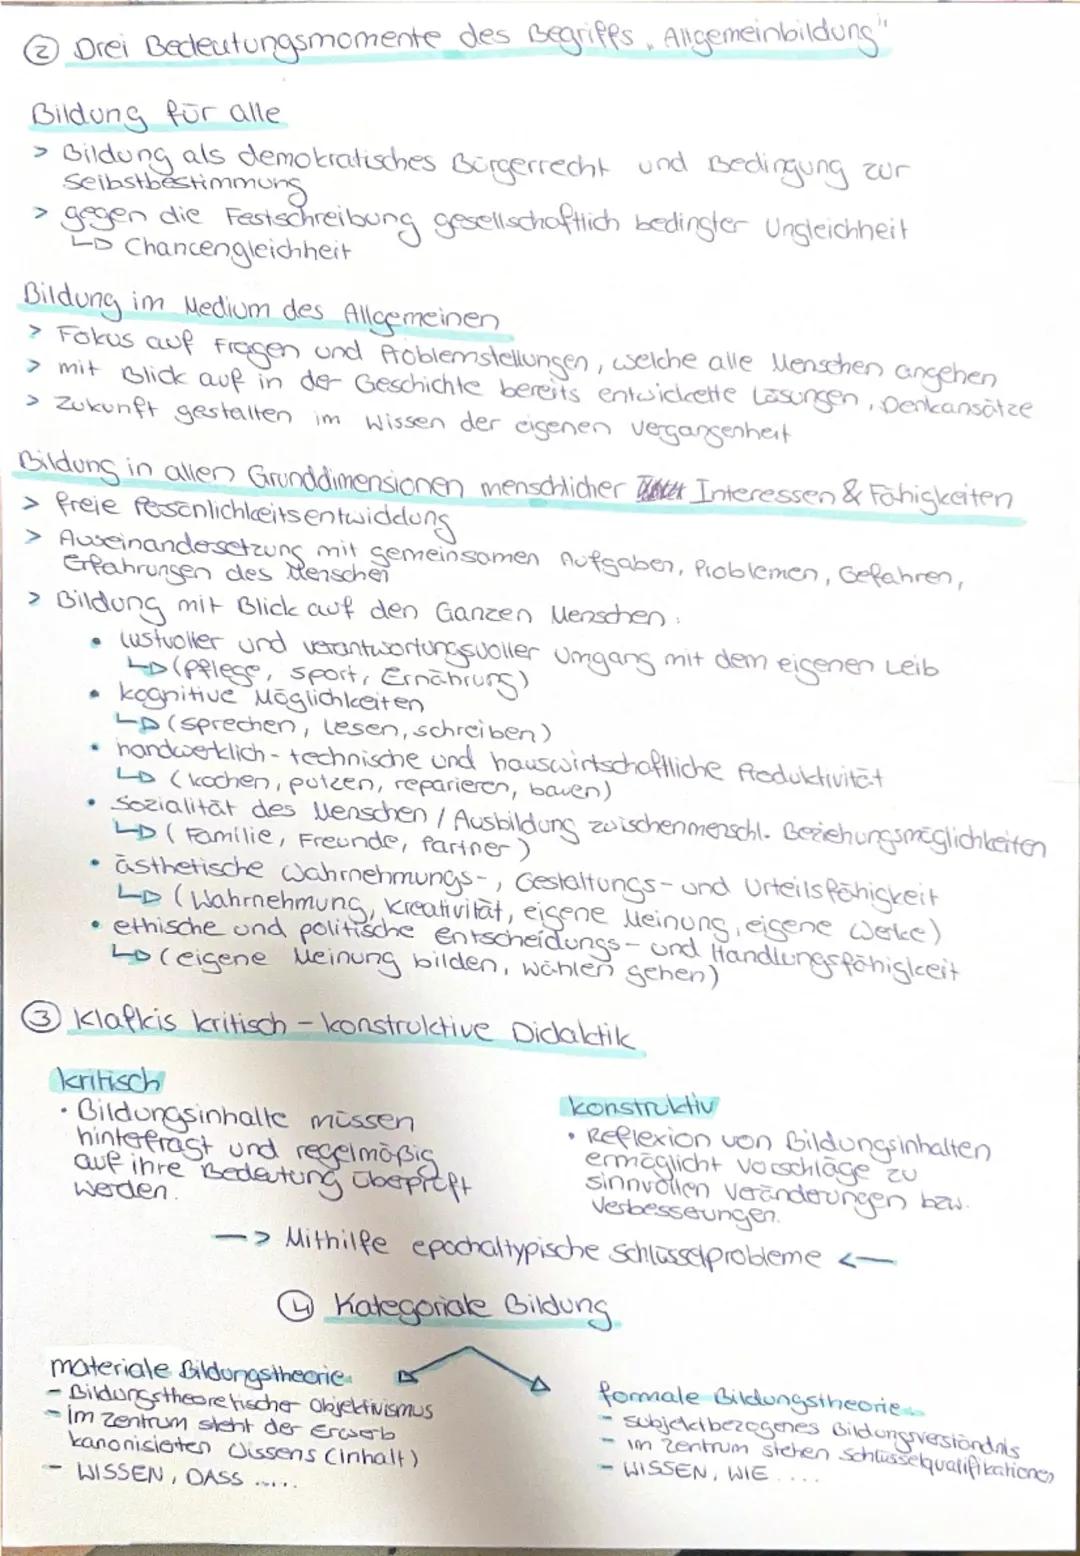 ② Drei Bedeutungsmomente des Begriffs „Allgemeinbildung"
Bildung für alle
> Bildung als demokratisches Bürgerrecht und Bedingung zur
Selbstbestimmung
> gegen die Festschreibung gesellschaftlich bedingter Ungleichheit
↳ Chancengleichheit
Bildung im Medium des Allgemeinen
> Fokus auf Fragen und Problemstellungen, welche alle Menschen angehen
> mit Blick auf in der Geschichte bereits entwickelte Lösungen, Denkansätze
> Zukunft gestalten im Wissen der eigenen Vergangenheit
Bildung in allen Grunddimensionen menschlicher Interessen & Fähigkeiten
> freie Persönlichkeitsentwicklung
> Auseinandersetzung mit gemeinsamen Aufgaben, Problemen, Gefahren,
Erfahrungen des Menschen
> Bildung mit Blick auf den Ganzen Menschen:
• lustvoller und verantwortungsvoller Umgang mit dem eigenen Leib
↳ (pflege, sport, Ernährung)
• kognitive Möglichkeiten
↳ (sprechen, lesen, schreiben)
• handwerklich-technische und hauswirtschaftliche Produktivität
↳ (kochen, putzen, reparieren, bauen)
• Sozialität des Menschen / Ausbildung zwischenmenschl. Beziehungsmöglichkeiten
↳ (Familie, Freunde, Partner)
• ästhetische Wahrnehmungs-, Gestaltungs- und Urteilsfähigkeit
↳ (Wahrnehmung, Kreativität, eigene Meinung, eigene Werke)
• ethische und politische entscheidungs- und Handlungsfähigkeit
↳ (eigene Meinung bilden, wählen gehen)
③ Klafkis kritisch-konstruktive Didaktik
kritisch
• Bildungsinhalte müssen
hinterfragt und regelmäßig
auf ihre Bedeutung überprüft
werden.
konstruktiv
• Reflexion von Bildungsinhalten
ermöglicht Vorschläge zu
sinnvollen Veränderungen bzw.
Verbesserungen.
—> Mithilfe epochaltypische Schlüsselprobleme <—
④ Kategoriale Bildung
materiale Bildungstheorie
- Bildungstheoretischer Objektivismus
- im Zentrum steht der Erwerb
kanonisierten Wissens (Inhalt)
- WISSEN, DASS .....
formale Bildungstheorie
- subjektbezogenes Bildungsverständnis
- im Zentrum stehen Schlüsselqualifikationen
- WISSEN, WIE ....